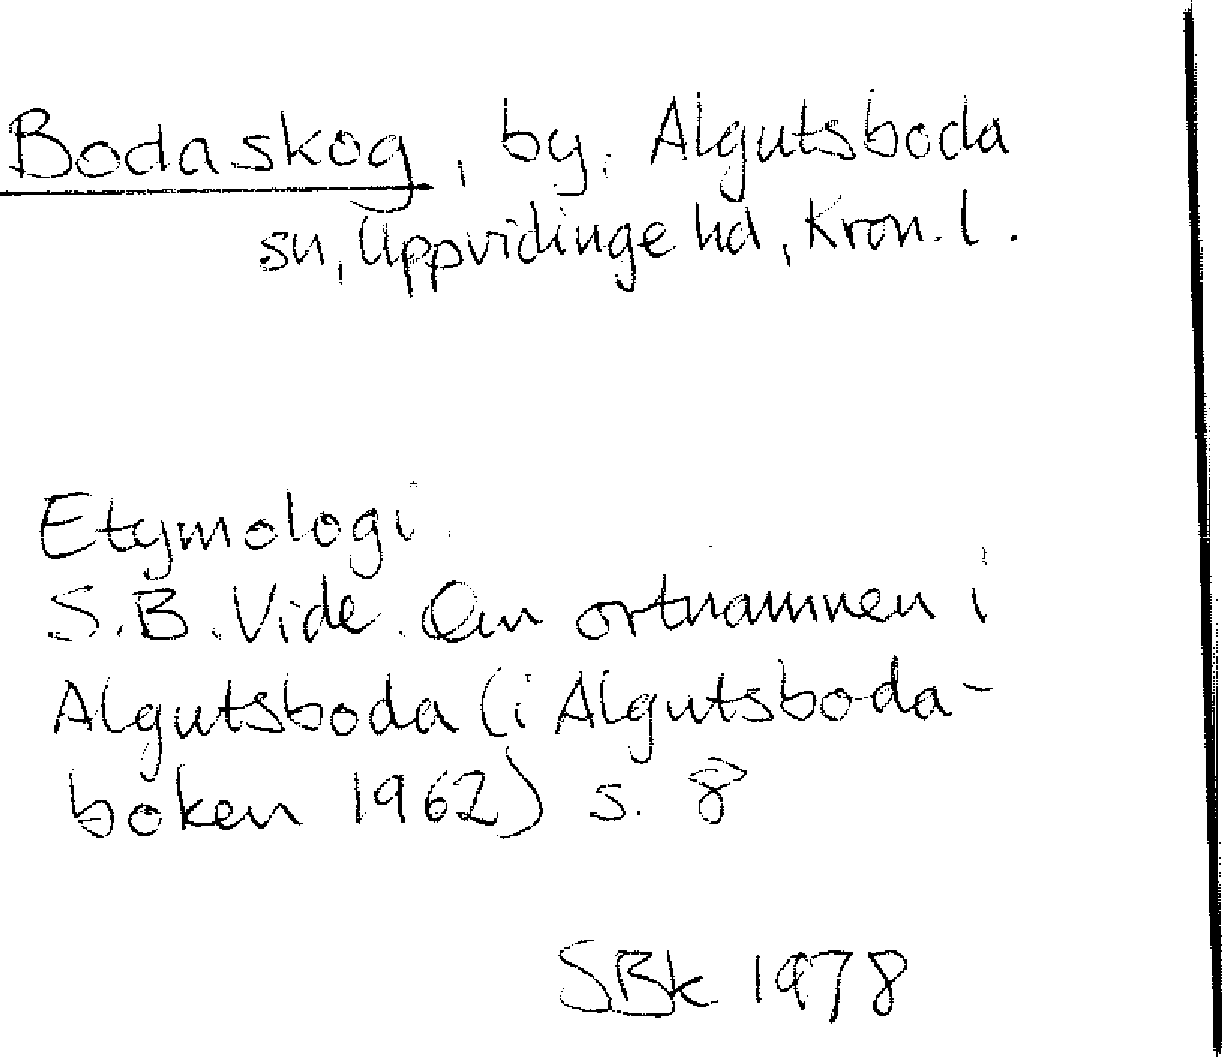 Bodaskog, by, Algutsboda
sn, Uppvidinge hd, Kron. l.
Etymologi
S.B. Vide. Om ortnamnen i
Algutsboda (i Algutsboda-
boken 1962) s. 8
SBk 1978